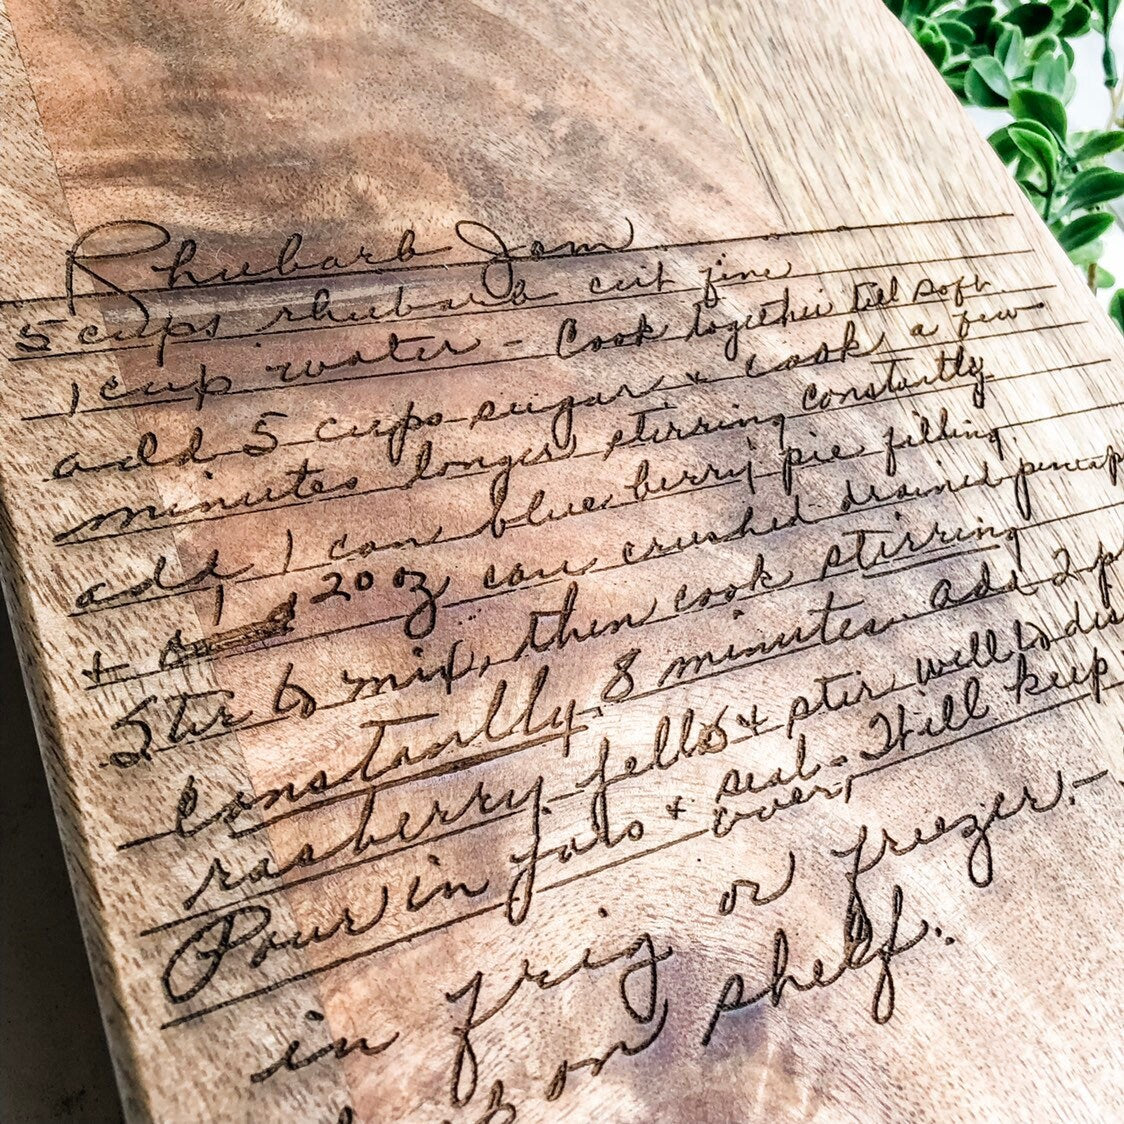 Rhubarb Jam
5 cups rhubarb cut fine
1 cup water - Cook together till soft
add 5 cups sugar & cook a few
minutes longer stirring constantly
add 1 can blueberry pie filling
+ 1 20 oz can crushed drained pineap
Stir to mix, then cook stirring
constantly 8 minutes add 2 p
rasberry jello + stir well to dis
Pour in jars + seal. Will keep
over,
in frig or freezer.-
on shelf.